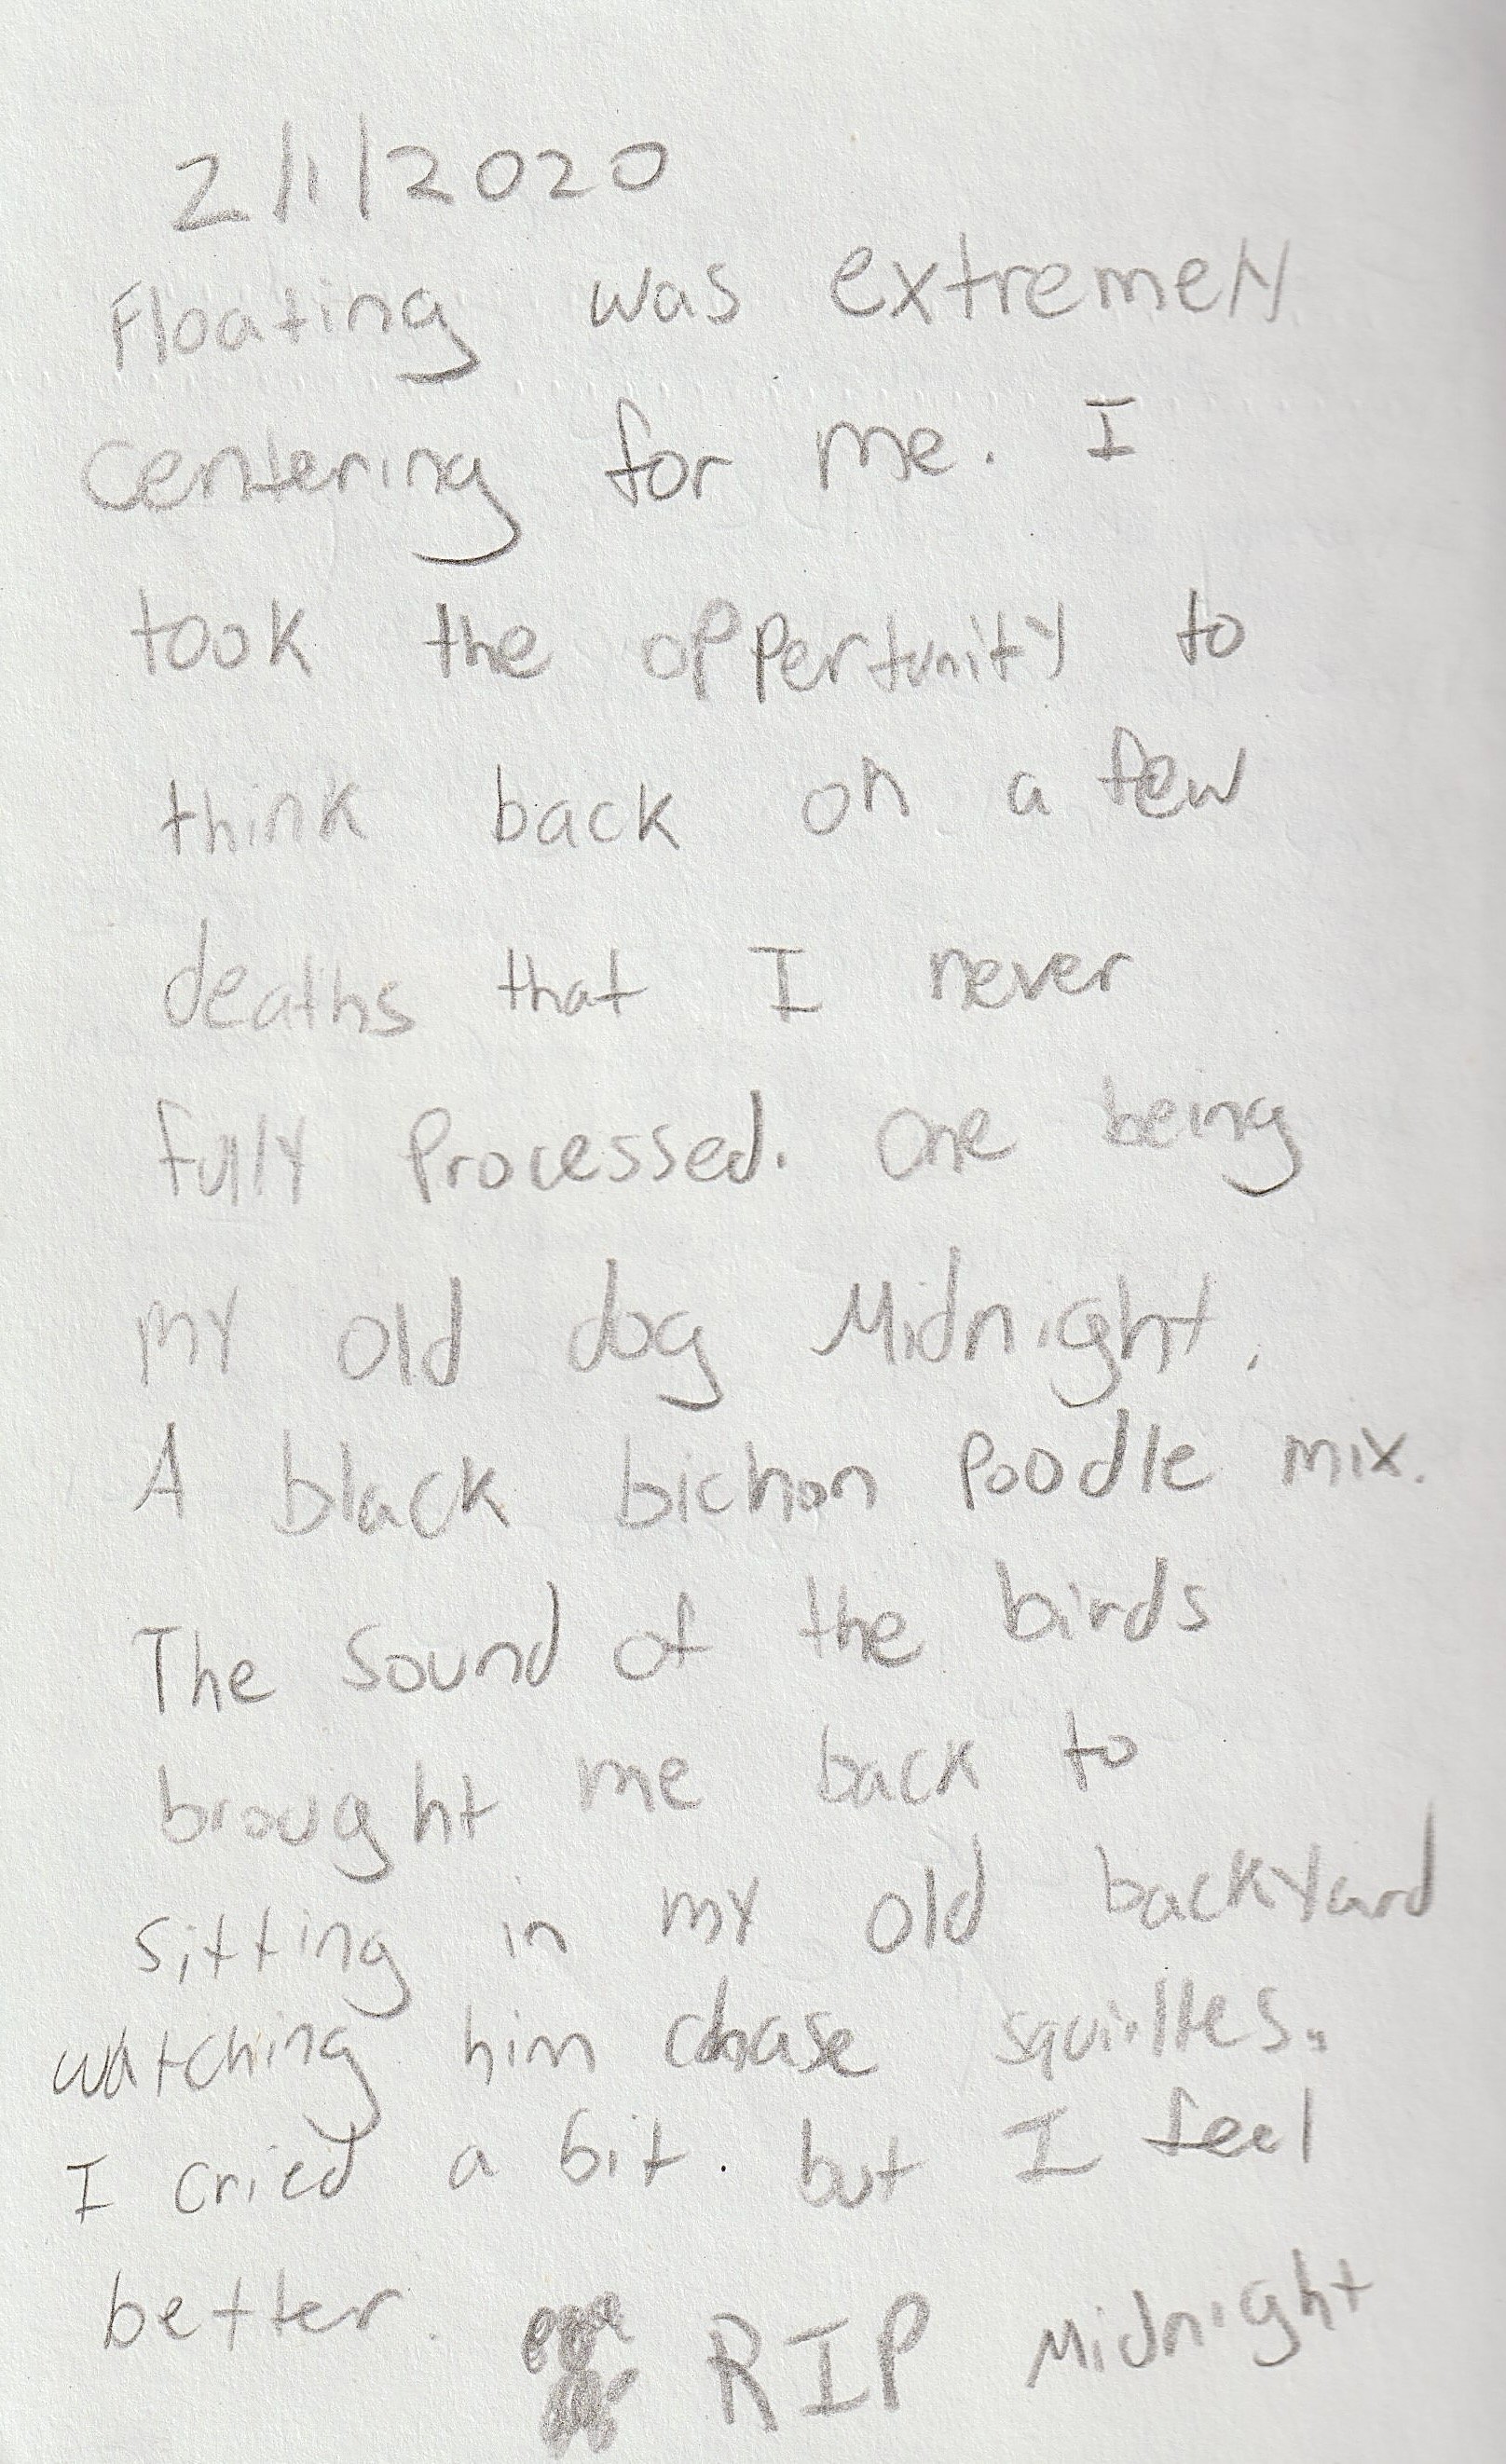 2/1/2020
Floating was extremely
centering for me. I
took the oppertunity to
think back on a few
deaths that I never
fully processed. One being
my old dog Midnight.
A black bichon poodle mix.
The sound of the birds
brought me back to
sitting in my old backyard
watching him chase
I cried a bit. but I feel
better. RIP Midnight